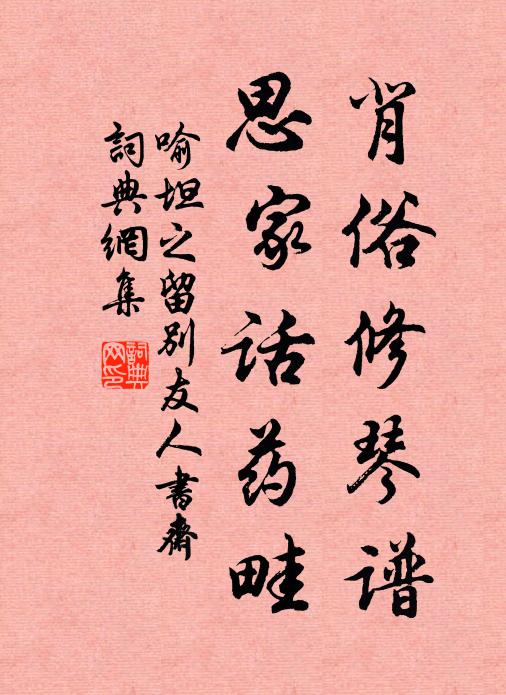 肖俗修琴谱
思家话药畦
喻坦之留別友人書齋
詞典網集
詞典网印